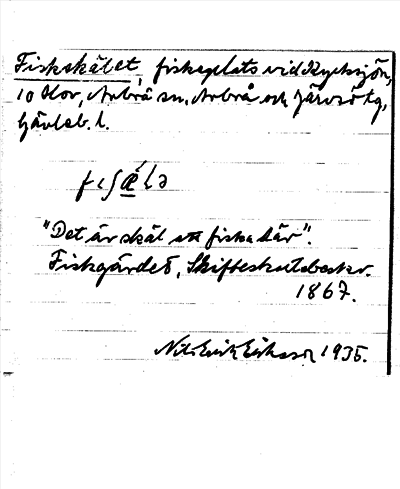 Fiskskälet, fiskeplats vid Kyrksjön,
10 Hov, Arbrå sn, Arbrå och Järvsö tg,
Gävleb. l.
"Det är skäl att fiska här".
Fiskgärdet, Skifteskartebeskr.
1867.
Nils Erik Eriksson 1935.